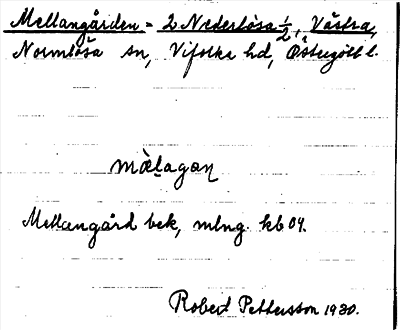 Mellangården = 2 Nederlösa ½, Västra,
Normlösa sn, Vifolka hd, Östergötl l.
mæ̀lagaɳ
Mellangård bek, mlng. kb 04.
Robert Pettersson 1930.